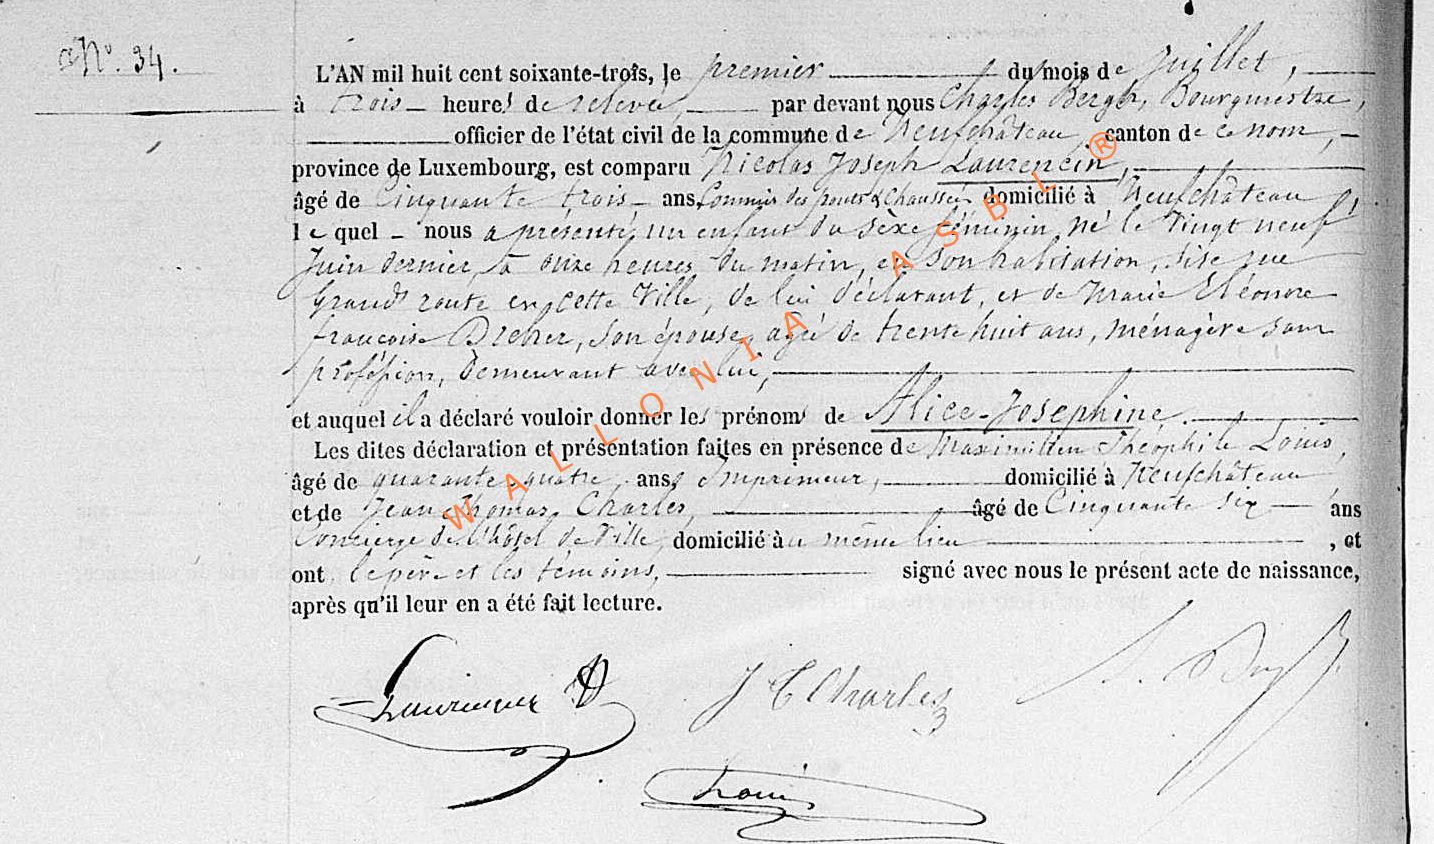 N° 34.
L'AN mil huit cent soixante-trois, le premier du mois de juillet,
à trois heures de relevée, par devant nous Charles Berger, Bourgmestre,
officier de l'état civil de la commune de Neufchâteau, canton de ce nom,
province de Luxembourg, est comparu Nicolas Joseph Laurencin,
âgé de Cinquante trois ans, Commis des ponts & Chaussées domicilié à Neufchâteau,
lequel nous a présenté, un enfant du sèxe féminin, né le Vingt neuf
Juin dernier, à onze heures du matin, en son habitation, sise rue
Grand route en cette Ville, de lui déclarant, et de Marie Eléonore
françoise Dreher, son épouse, agée de trente huit ans, ménagère sans
proféssion, demeurant avec lui,
et auquel il a déclaré vouloir donner les prénoms de Alice-Josephine.
Les dites déclaration et présentation faites en présence de Maximilien Théophile Louis,
âgé de quarante-quatre ans, Imprimeur, domicilié à Neufchâteau
et de Jean Thomas Charles, âgé de Cinquante six ans
Concierge de l'hôtel de Ville, domicilié au même lieu, et
ont le père et les témoins, signé avec nous le présent acte de naissance,
après qu'il leur en a été fait lecture.
J T Charles
Louis
WALLONIA ASBL ®